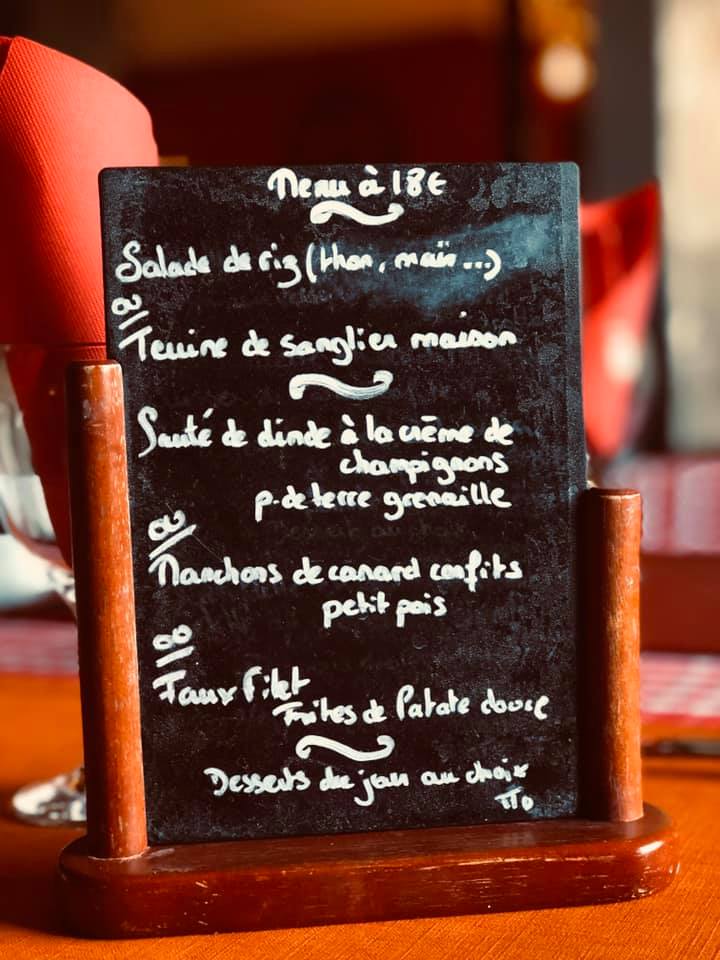 Menu à 18€
Salade de riz (thon, maïs...)
Terrine de sanglier maison
Sauté de dinde à la crème de
champignons
p. de terre grenaille
Manchons de canard confits
petit pois
Faux filet
Frites de Patate douce
Desserts du jour au choix